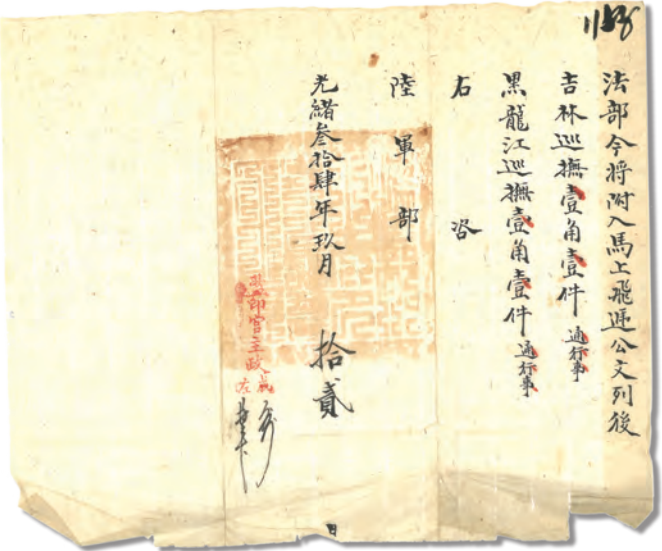 法部今將附入馬上飛遞公文列後
吉林巡撫壹角壹件 通行事
黑龍江巡撫壹角壹件 通行事
右咨
陸軍部
光緒叁拾肆年玖月 拾貳 日
印官主政